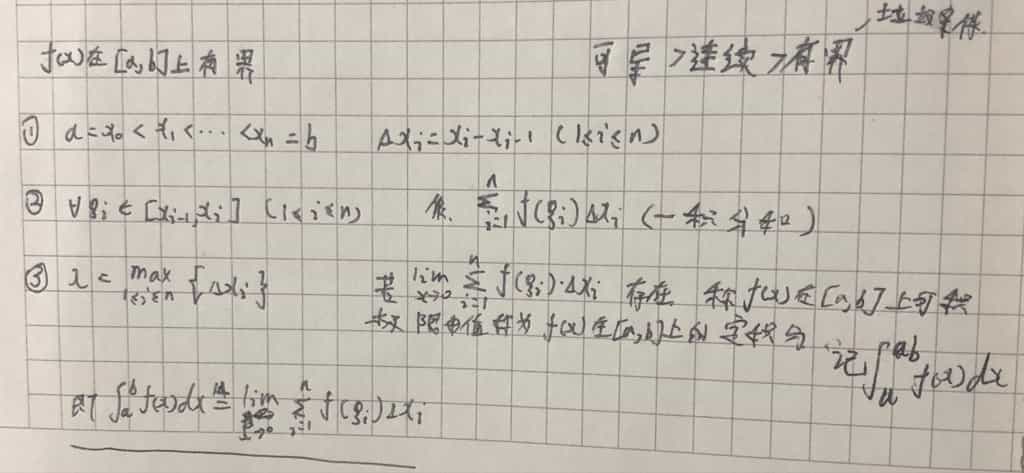 基础条件
f(x)在[a,b]上有界 可导>连续>有界
① a=x₀<x₁<⋯<xₙ=b Δxᵢ=xᵢ-xᵢ₋₁ (1≤i≤n)
② ∀ξᵢ∈[xᵢ₋₁,xᵢ] (1≤i≤n) 作 ∑ᵢ₌₁ⁿ f(ξᵢ)Δxᵢ (一积分和)
③ λ= max_{1≤i≤n} {Δxᵢ} 若 lim_{x→0} ∑ᵢ₌₁ⁿ f(ξᵢ)·Δxᵢ 存在 称f(x)在[a,b]上可积
极限值称为f(x)在[a,b]上的定积分 记∫ₐᵇ f(x)dx
即 ∫ₐᵇ f(x)dx ≜ lim_{λ→0} ∑ᵢ₌₁ⁿ f(ξᵢ)Δxᵢ